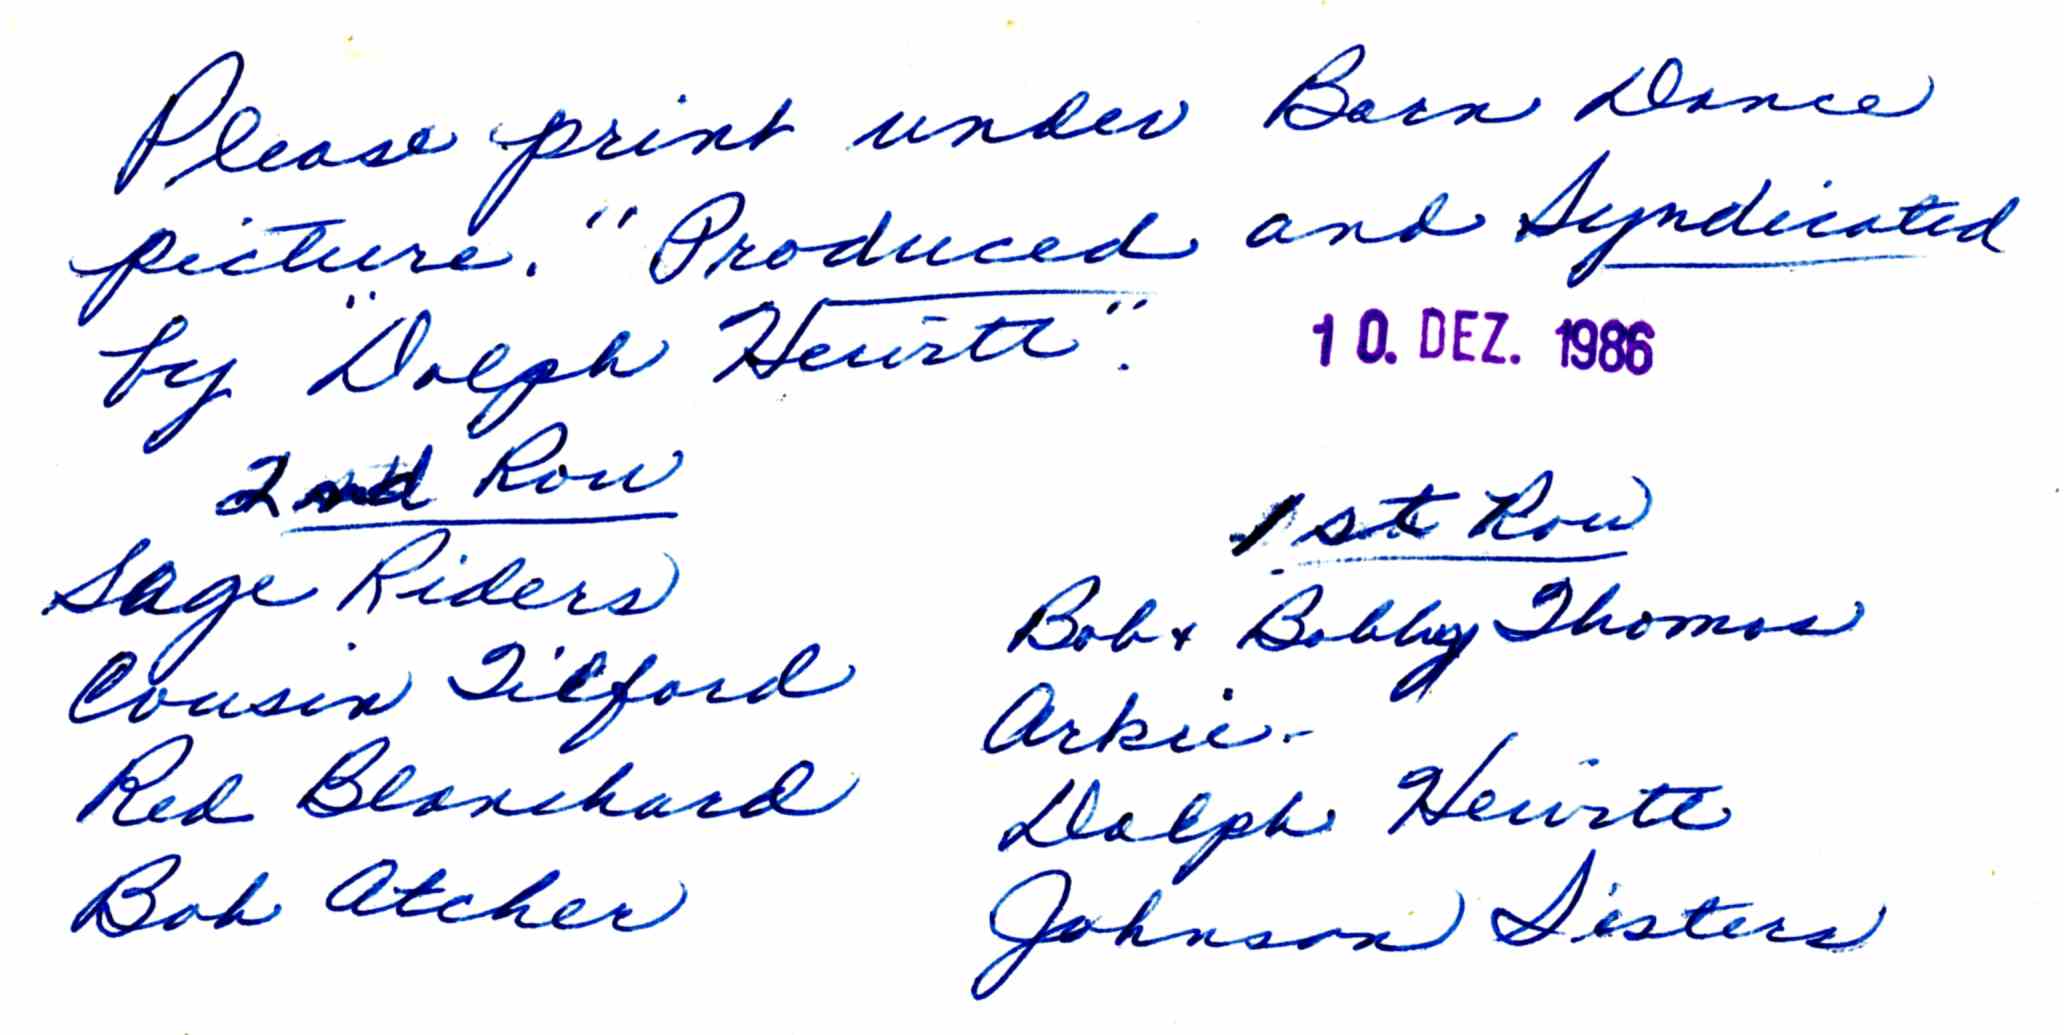 Please print under Barn Dance
picture. "Produced and Syndicated
by "Dolph Hewitt".
10. DEZ. 1986
2nd Row
Sage Riders
Cousin Tilford
Red Blanchard
Bob Atcher
1st Row
Bob & Bobby Thomas
Arkie.
Dolph Hewitt
Johnson Sisters